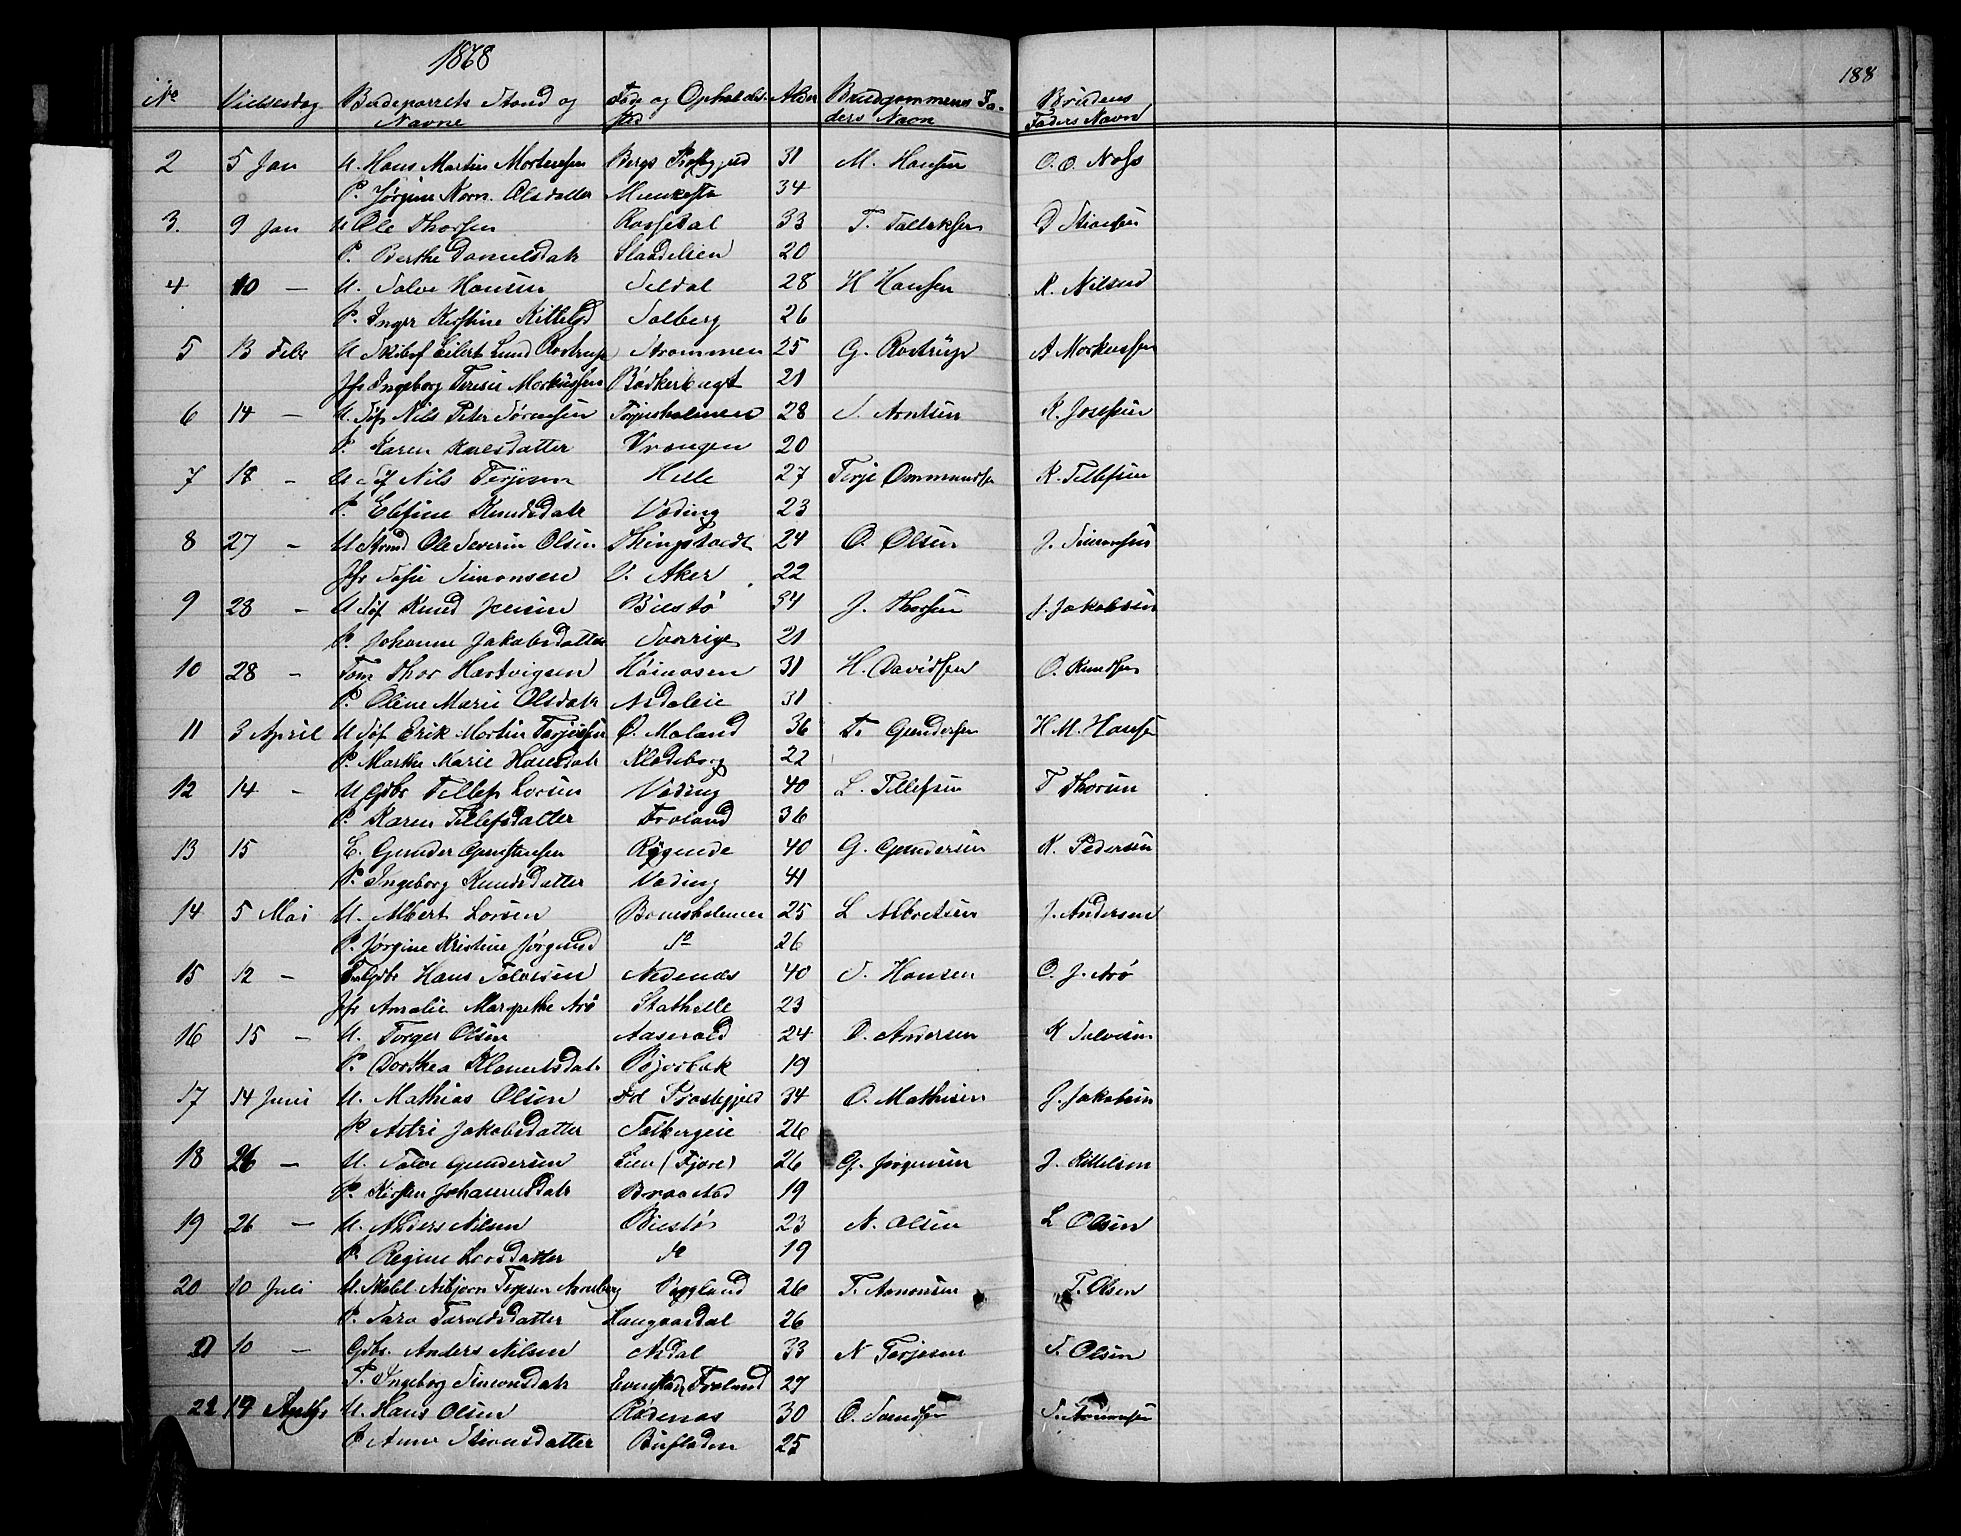 1878
188
No Vielsesdag Brudeparrets Stand og Navne Føde og Opholdssted Alder Brudgommens Faders Navn Brudens Faders Navn
2 5 Jan U. Hans Martin Mortensen Bergs Prestgjeld 31 M. Hansen O. O. Næss
P. Jørgine Norn. Olsdatter 34
3. 9 Jan U Ole Thorsen Rossedal 33 T. Tallaksen D
P. Berthe Danielsdatr 20
4 10 — U. Salve Hansen Seldal 28 H Hansen K. Nilsen
P. Inger Kirstine Kittelsd Solberg 26
5 13 Febr U Skibsf Eilert Lund Rostrup Strømmen 25 G. Rostrup A Markussen
Jfr Ingeborg Terese Markussen Bødkerbugt 21
6 14 — U. Søf Nils Peter Sørensen Terjesholmen 28 S. Arntsen K. Josefsen
P. Karen Karlsdatter Vrangen 20
7 18 — U Sf Nils Terjesen Helle 27 Terje Ommundsen K. Tellefsen
P. Elefine Knudsdatr Vading 23
8 27 — U Ole Severin Olsen 24 O. Olsen J. Simonsen
Jfr Sofie Simonsen V. Aker 22
9 28 — U Søf Knud Jensen Biestø 34 J. Thorsen J. Jakobsen
P. Johanne Jakobsdatter Sverrige 21
10 28 — Tøm Thor Hartvigsen Høinasen 31 H. Davidsen O. Knudsen
P. Oline Marie Olsdatr Nedaleie 31
11 3 April U Søf Erik Martin Terjesen Ø. Moland 36 T. Gundersen H. M. Hansen
P. Marthe Marie Hansdatr Kladeborg 22
12 14 — U Gdbr Tellef Larsen Vading 40 L. Tellefsen T Thorsen
P. Karen Tellefsdatter Froland 36
13 15 E. Gunder Gundersen Rygende 40 G. Gundersen K. Pedersen
P. Ingeborg Knudsdatter Vading 41
14 5 Mai U. Albert Larsen Buesholmen 25 L Albretsen J. Andersen
P. Jørgine Kristine Jørgensd do 26
15 12 — Gdbr Hans Salvesen Nedenes 40 S. Hansen O. J. Arø
Jfr Amalie Margrethe Arø Stathelle 23
16 15 — U. Torger Olsen Aaserald 24 O. Andersen K Salvesen
P. Dorthea Klemetsdatr Bjorbæk 19
17 14 Juni U. Mathias Olsen Prestegjeld 34 O. Mathisen J. Jakobsen
P Jakobsdatter Solbergeie 26
18 26 — U. Salve Gundersen Lien (Fjære) 26 G. Jørgensen J. Kittelsen
P. Kirsten Johannesdatr Braastad 19
19 26 — U. Anders Nilsen Biestø 23 N. Olsen L Olsen
P. Regine Larsdatter do 19
20 10 Juli U. Asbjørn Terjesen Arneberg Vegland 26 T. Aanonsen T. Olsen
P. Sara Taraldsdatter Haugaasdal 26
21 10 — Gdbr Anders Nilsen Nedal 33 N Terjesen S. Olsen
P. Ingeborg Simonsdatr Froland 27
22 19 U. Hans Olsen Rødenæs 30 O. Svendsen
P Anne Simonsdatter 25